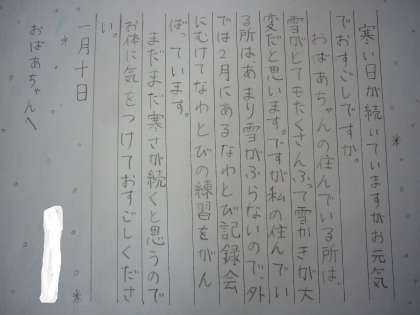 寒い日が続いていますがお元気
でおすごしですか。
おばあちゃんの住んでいる所は、
雪がとてもたくさんふって雪かきが大
変だと思います。ですが私の住んでい
る所は、あまり雪がふらないので、外
では2月にあるなわとび記録会
にむけてなわとびの練習をがん
ばっています。
まだまだ寒さが続くと思うので
お体に気をつけておすごしくださ
い。
一月十日
おばあちゃんへ